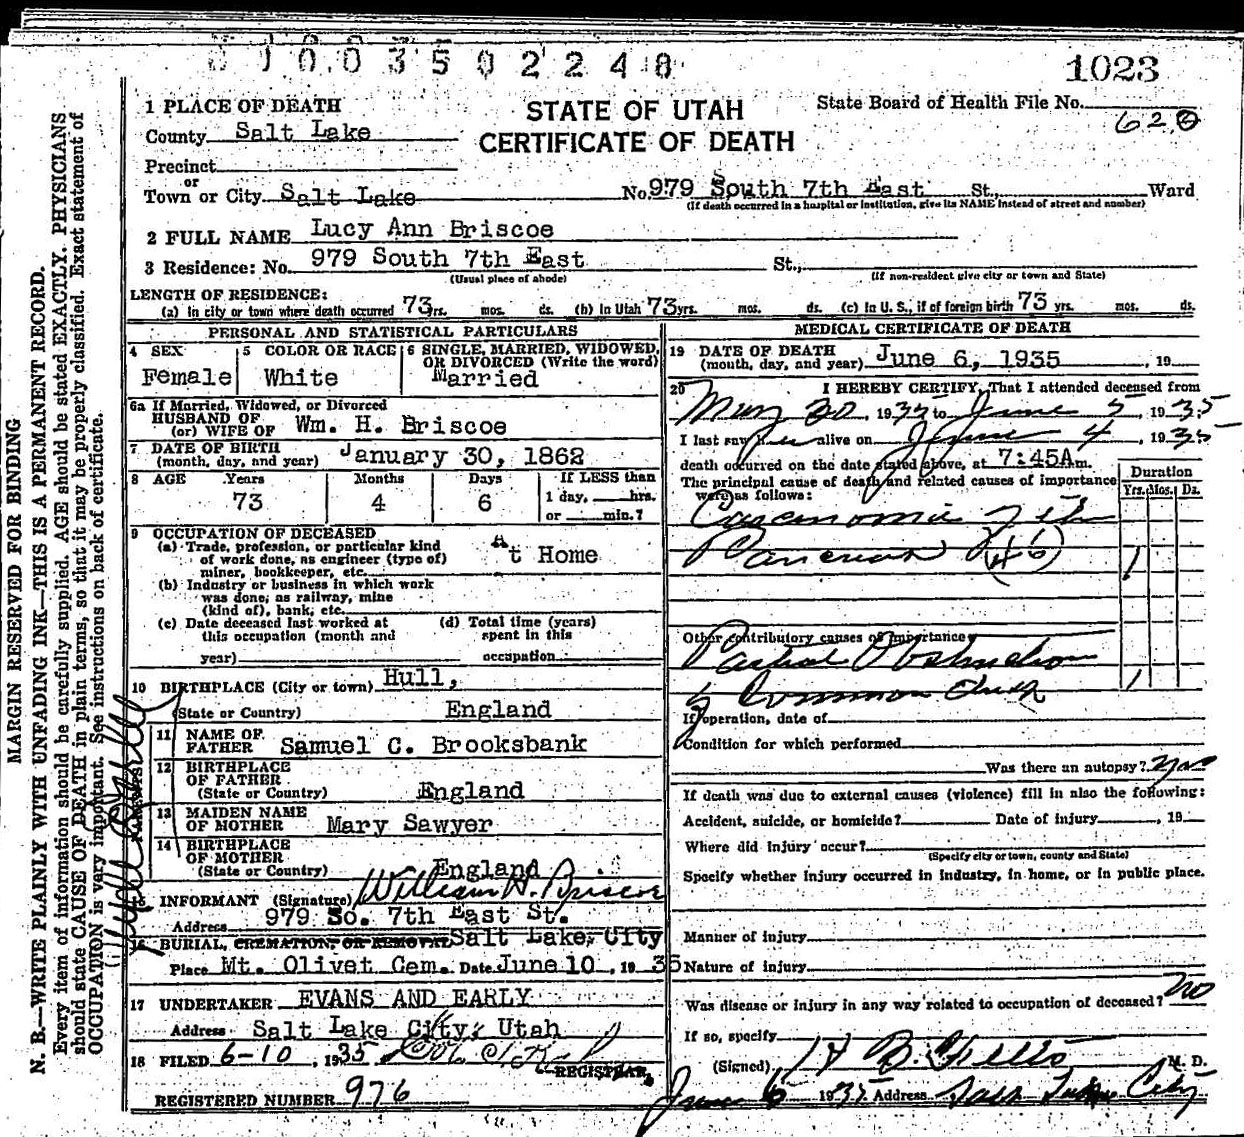 0 0 3 5 0 2 2 4 8
1023
1 PLACE OF DEATH
STATE OF UTAH
CERTIFICATE OF DEATH
State Board of Health File No.
620
County Salt Lake
Precinct
or
Town or City Salt Lake No. 979 South 7th East St., Ward
(If death occurred in a hospital or institution, give its NAME instead of street and number)
2 FULL NAME Lucy Ann Briscoe
3 Residence: No. 979 South 7th East St.,
(Usual place of abode) (If non-resident give city or town and State)
LENGTH OF RESIDENCE:
(a) In city or town where death occurred 73 yrs. mos. ds. (b) In Utah 73 yrs. mos. ds. (c) In U. S., if of foreign birth 73 yrs. mos. ds.
PERSONAL AND STATISTICAL PARTICULARS
4 SEX Female
5 COLOR OR RACE White
6 SINGLE, MARRIED, WIDOWED, OR DIVORCED (Write the word) Married
6a If Married, Widowed, or Divorced
HUSBAND OF
(or) WIFE OF Wm. H. Briscoe
7 DATE OF BIRTH
(month, day, and year) January 30, 1862
8 AGE Years Months Days If LESS than
73 4 6 1 day, hrs.
or min.?
9 OCCUPATION OF DECEASED
(a) Trade, profession, or particular kind
of work done, as engineer (type of)
miner, bookkeeper, etc. At Home
(b) Industry or business in which work
was done; as railway, mine
(kind of), bank, etc.
(c) Date deceased last worked at
this occupation (month and
year)
(d) Total time (years)
spent in this
occupation
10 BIRTHPLACE (City or town) Hull,
(State or Country) England
11 NAME OF
FATHER Samuel C. Brooksbank
12 BIRTHPLACE
OF FATHER
(State or Country) England
13 MAIDEN NAME
OF MOTHER Mary Sawyer
14 BIRTHPLACE
OF MOTHER
(State or Country) England
15 INFORMANT (Signature) William H. Briscoe
Address 979 So. 7th East St.
16 BURIAL, CREMATION, OR REMOVAL Salt Lake City
Place Mt. Olivet Cem. Date June 10, 1935
17 UNDERTAKER EVANS AND EARLY
Address Salt Lake City, Utah
18 FILED 6-10, 1935
REGISTRAR.
REGISTERED NUMBER 976
MEDICAL CERTIFICATE OF DEATH
19 DATE OF DEATH
(month, day, and year) June 6, 1935, 19
20 I HEREBY CERTIFY, That I attended deceased from
May 20 1935 to June 5, 1935
I last saw her alive on June 4, 1935
death occurred on the date stated above, at 7:45A m.
The principal cause of death and related causes of importance
were as follows:
Duration
Yrs. Mos. Ds.
Carcinoma of the
Pancreas (46) 1
Other contributory causes of importance
Partial Obstruction
of Common Duct 1
If operation, date of
Condition for which performed
Was there an autopsy? no
If death was due to external causes (violence) fill in also the following:
Accident, suicide, or homicide? Date of injury, 19
Where did injury occur?
(Specify city or town, county and State)
Specify whether injury occurred in industry, in home, or in public place.
Manner of injury
Nature of injury
Was disease or injury in any way related to occupation of deceased? no
If so, specify
(Signed) M. D.
June 6 1935 Address Salt Lake City
MARGIN RESERVED FOR BINDING
N. B.—WRITE PLAINLY WITH UNFADING INK—THIS IS A PERMANENT RECORD.
Every item of information should be carefully supplied. AGE should be stated EXACTLY. PHYSICIANS
should state CAUSE OF DEATH in plain terms, so that it may be properly classified. Exact statement of
OCCUPATION is very important. See instructions on back of certificate.